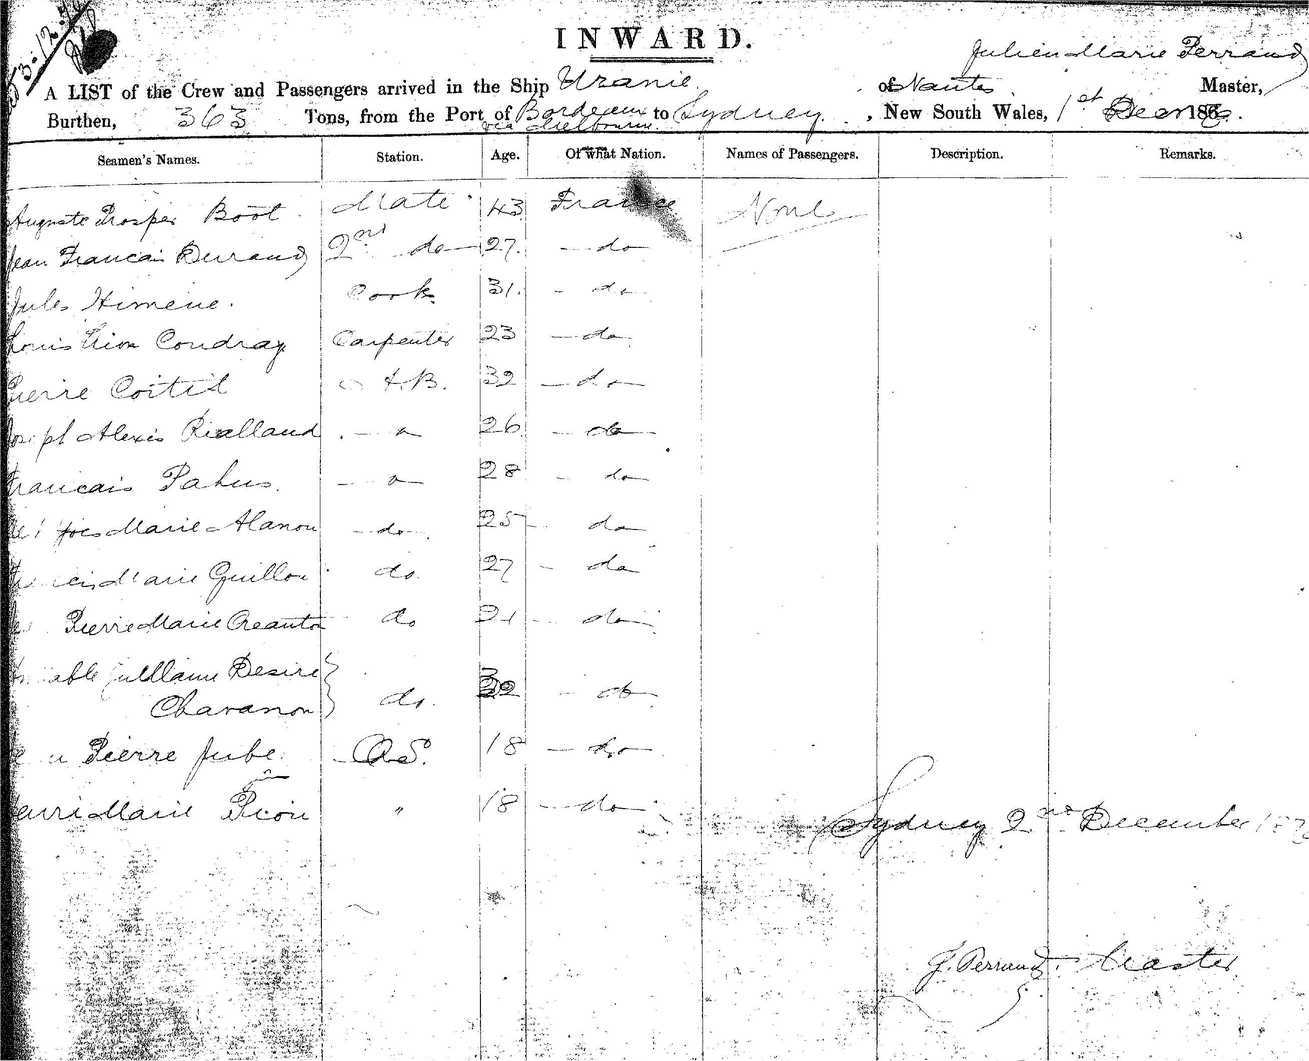 3-12-
INWARD.
Julien Marie Perraud
A LIST of the Crew and Passengers arrived in the Ship Uranie of Nantes Master,
Burthen, 363 Tons, from the Port of Bordeaux to Sydney, New South Wales, 1st 186
via Melbourne
Seamen's Names. Station. Age. Of what Nation. Names of Passengers. Description. Remarks.
Auguste Prosper Boot Mate 43 France None
Jean Francais Durand 2nd do 27 do
Jules Himene. Cook 31. do
Louis Coudray Carpenter 23 do
Pierre Coitil A.B. 32 do
Joseph Alexis Rialland 26 do
Francais Pahus. 28 do
Marie Alanou do 25 do
Marie Guillou do 27 do
Pierre Marie Creantor do 21 do
Desire
Chavanon do. do
Pierre Jube. O.S. 18 do
Marie Picou " 18 do
Sydney 2nd December
J. Perraud. Master